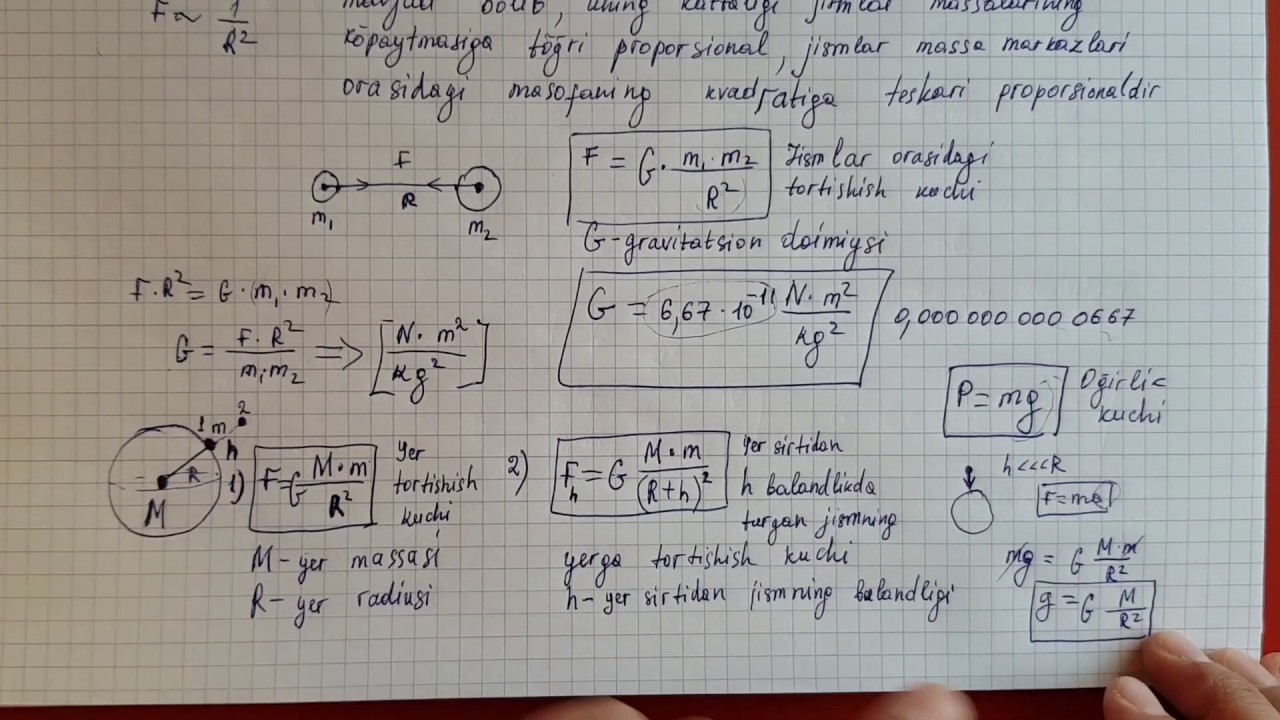 F ~ 1/R²
mavjud bo'lib, uning kattaligi jismlar massalarining
ko'paytmasiga tŏğri proporsional, jismlar massa markazlari
orasidagi masofaning kvadratiga teskari proporsionaldir
F
R
m₁ m₂
F = G · m₁·m₂/R² Jismlar orasidagi
tortishish kuchi
G-gravitatsion doimiysi
F·R² = G·(m₁·m₂)
G = F·R²/m₁m₂ ⟹ [N·m²/kg²]
G = 6,67·10⁻¹¹ N·m²/kg²
0,000 000 000 0667
P = mg Oğirlik
kuchi
1 m 2
h
R
M
1) F = G M·m/R² Yer
tortishish
kuchi
M – yer massasi
R – yer radiusi
2) Fₕ = G M·m/(R+h)² Yer sirtidan
h balandlikda
turgan jismning
yerga tortishish kuchi
h – yer sirtidan jismning balandligi
h<<<R
F = ma
mg = G M·m/R²
g = G M/R²